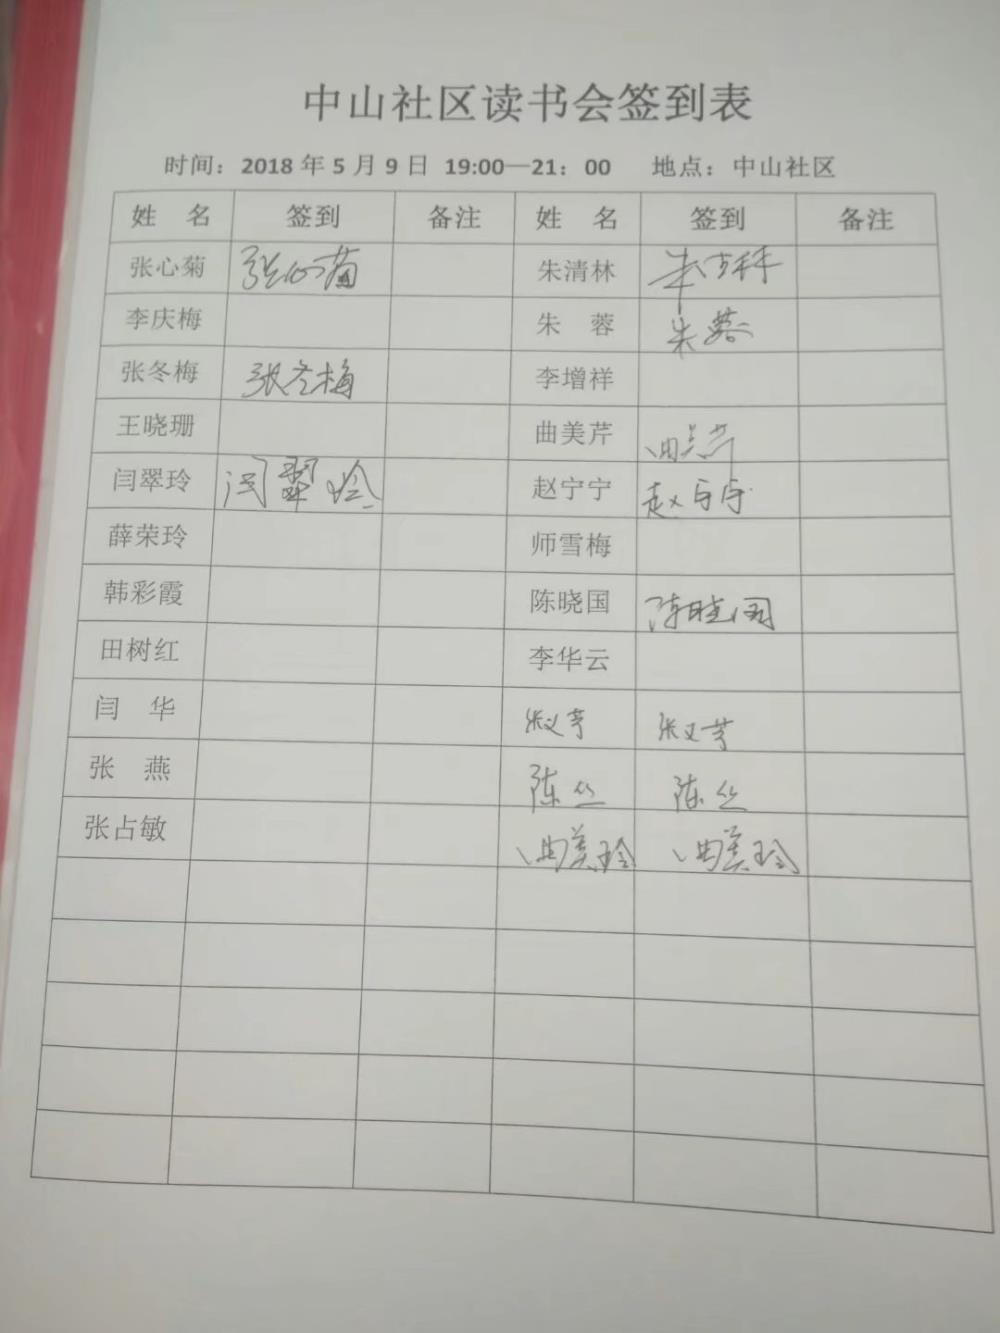 中山社区读书会签到表
时间：2018 年 5 月 9 日 19:00—21：00 地点：中山社区
姓 名 签到 备注 姓 名 签到 备注
张心菊 张心菊 朱清林 朱清林
李庆梅 朱 蓉 朱蓉
张冬梅 张冬梅 李增祥
王晓珊 曲美芹 曲美芹
闫翠玲 闫翠玲 赵宁宁 赵宁宁
薛荣玲 师雪梅
韩彩霞 陈晓国 陈晓国
田树红 李华云
闫 华
张 燕 陈丝 陈丝
张占敏 曲美玲 曲美玲